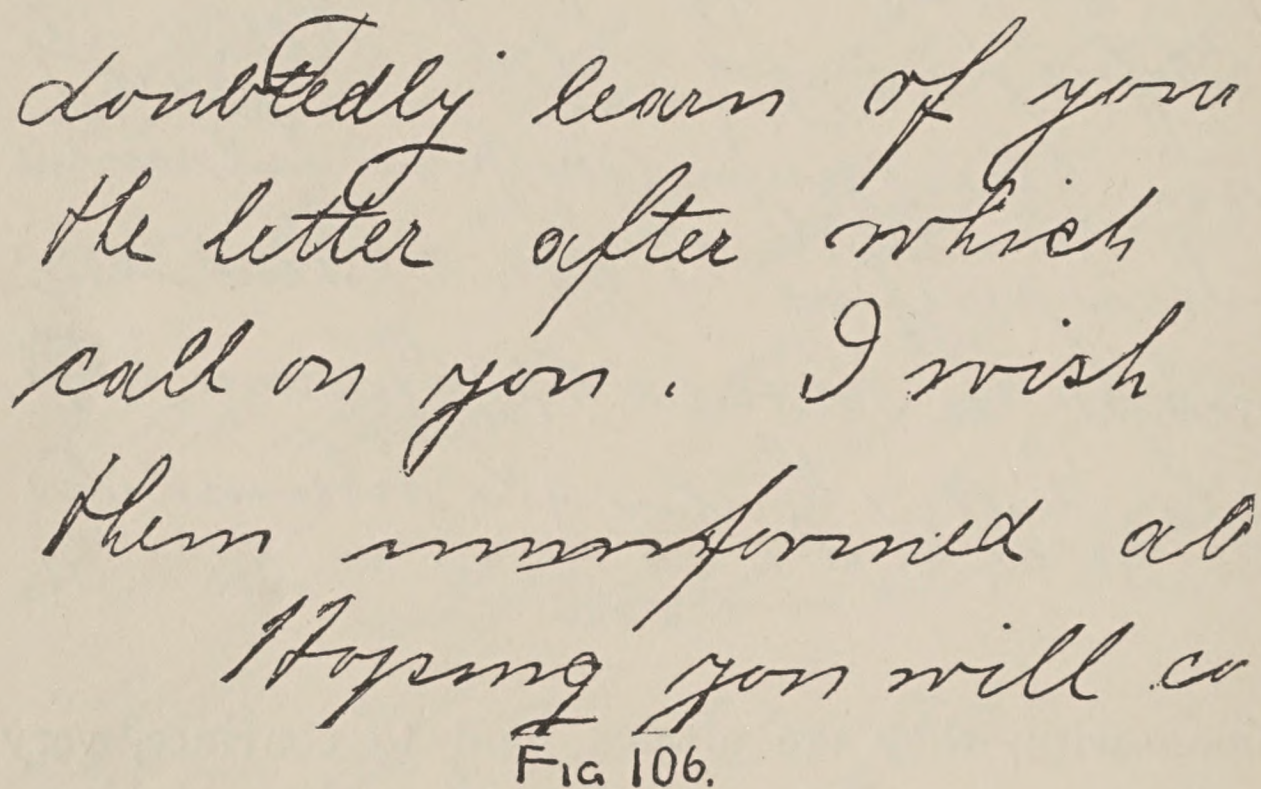 doubtedly learn of your
the letter after which
call on you. I wish
them uninformed ab
Hoping you will co
Fig 106.